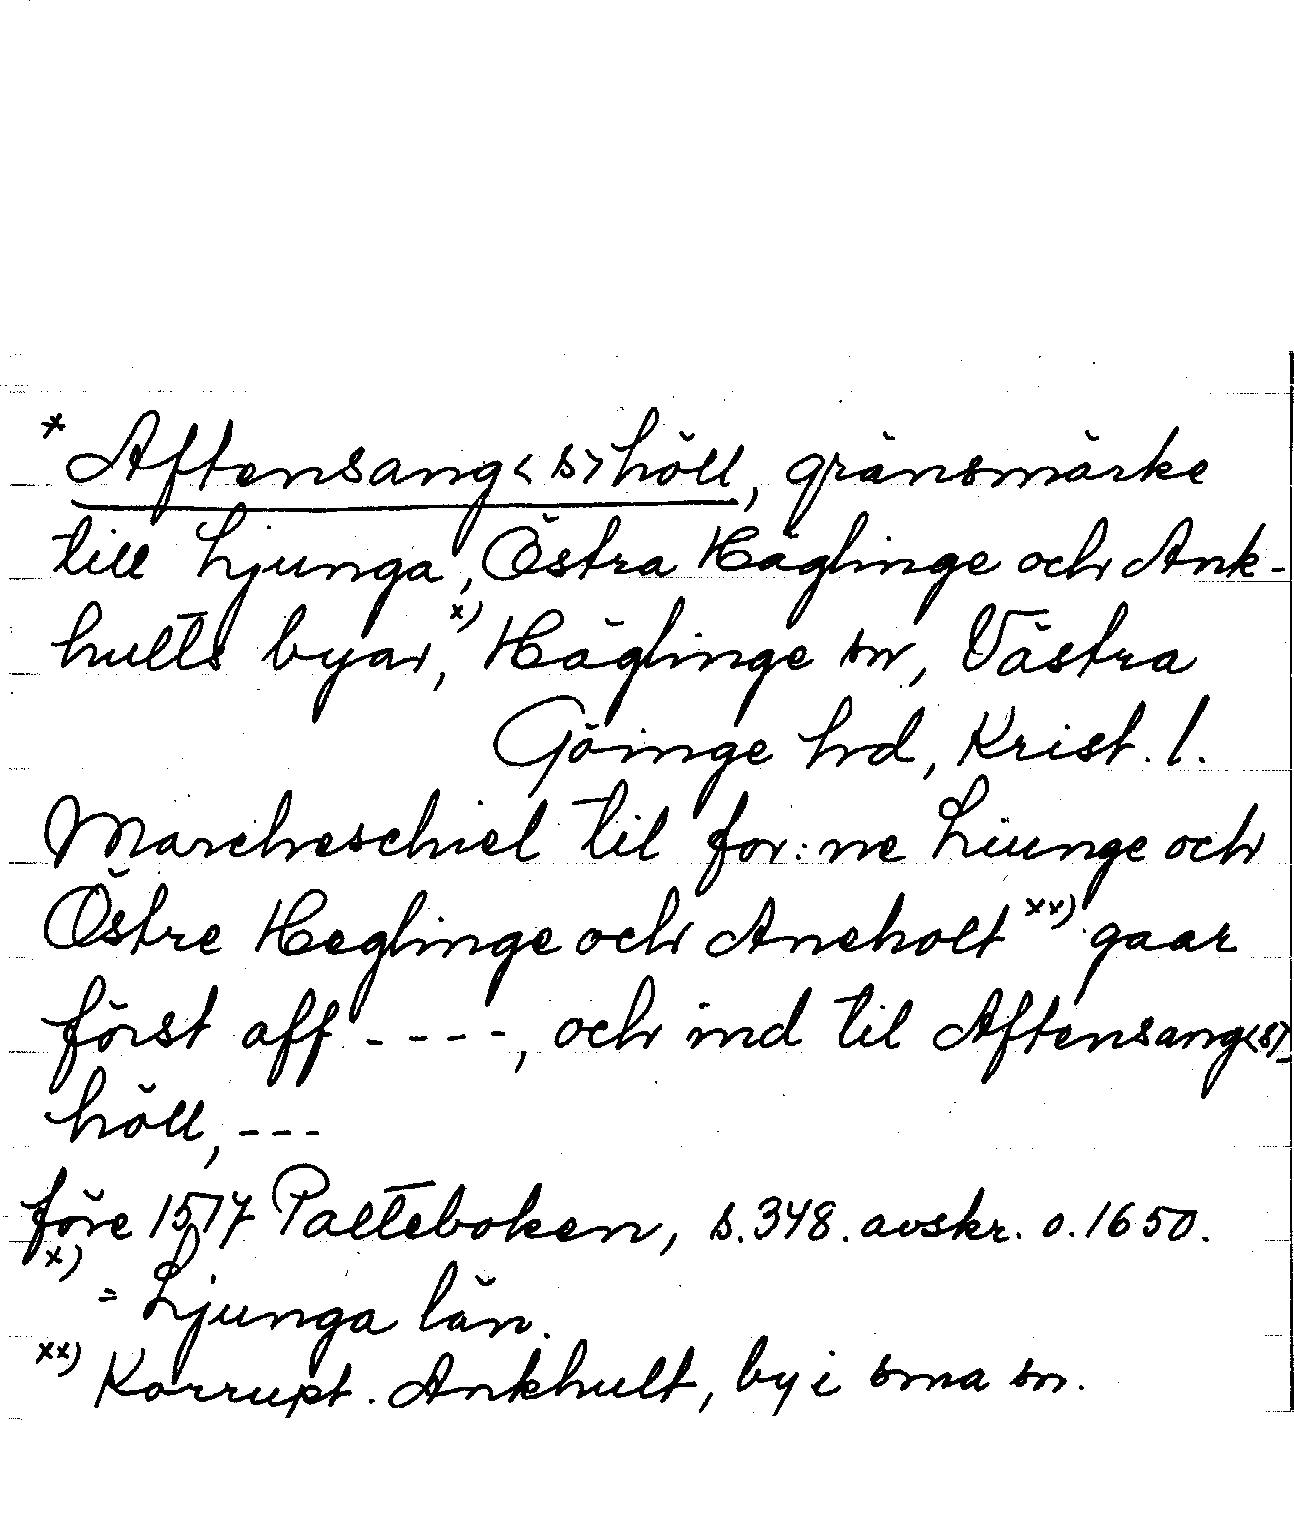 * Aftensang<s>höll, gränsmärke
till Ljunga, Östra Häglinge och Ank-
hults byar,x) Häglinge sn, Västra
Göinge hrd, Krist. l.
Marcheschiel til for:ne Liunge och
Östre Heglinge och Aneholt xx) gaar
först aff ----, och ind til Aftensang<s>-
höll, ---
före 1517 Palteboken, s.348. avskr. o. 1650.
x) = Ljunga län.
xx) Korrupt. Ankhult, by i sma sn.